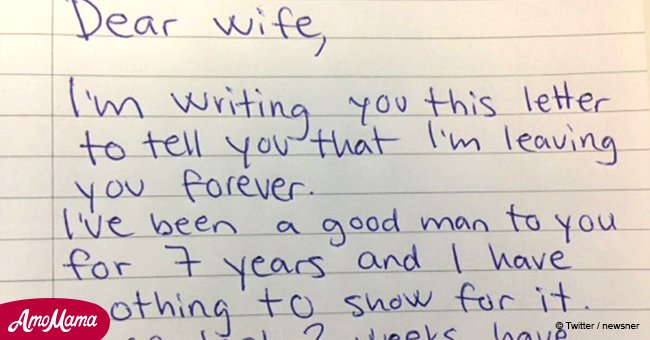 Dear wife,
I'm writing you this letter
to tell you that I'm leaving
you forever.
I've been a good man to you
for 7 years and I have
othing to show for it.
2 weeks have
AmoMama
© Twitter / newsner